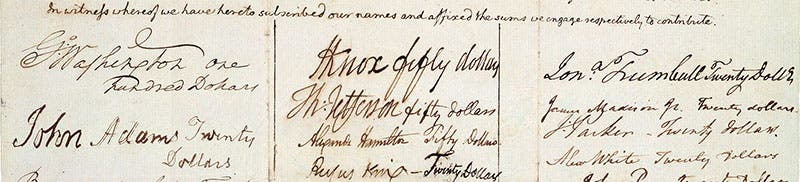 In witness whereof we have hereto subscribed our names and affixed the sums we engage respectively to contribute.
Go Washington one
hundred Dollars
John Adams Twenty
Dollars
HKnox fifty dollars
Th: Jefferson fifty dollars
Alexander Hamilton Fifty Dollars
Rufus King - Twenty Dollars
Jona Trumbull Twenty Dolls
James Madison Jr. Twenty dollars.
J. Parker - Twenty dollars.
Alex White Twenty Dollars